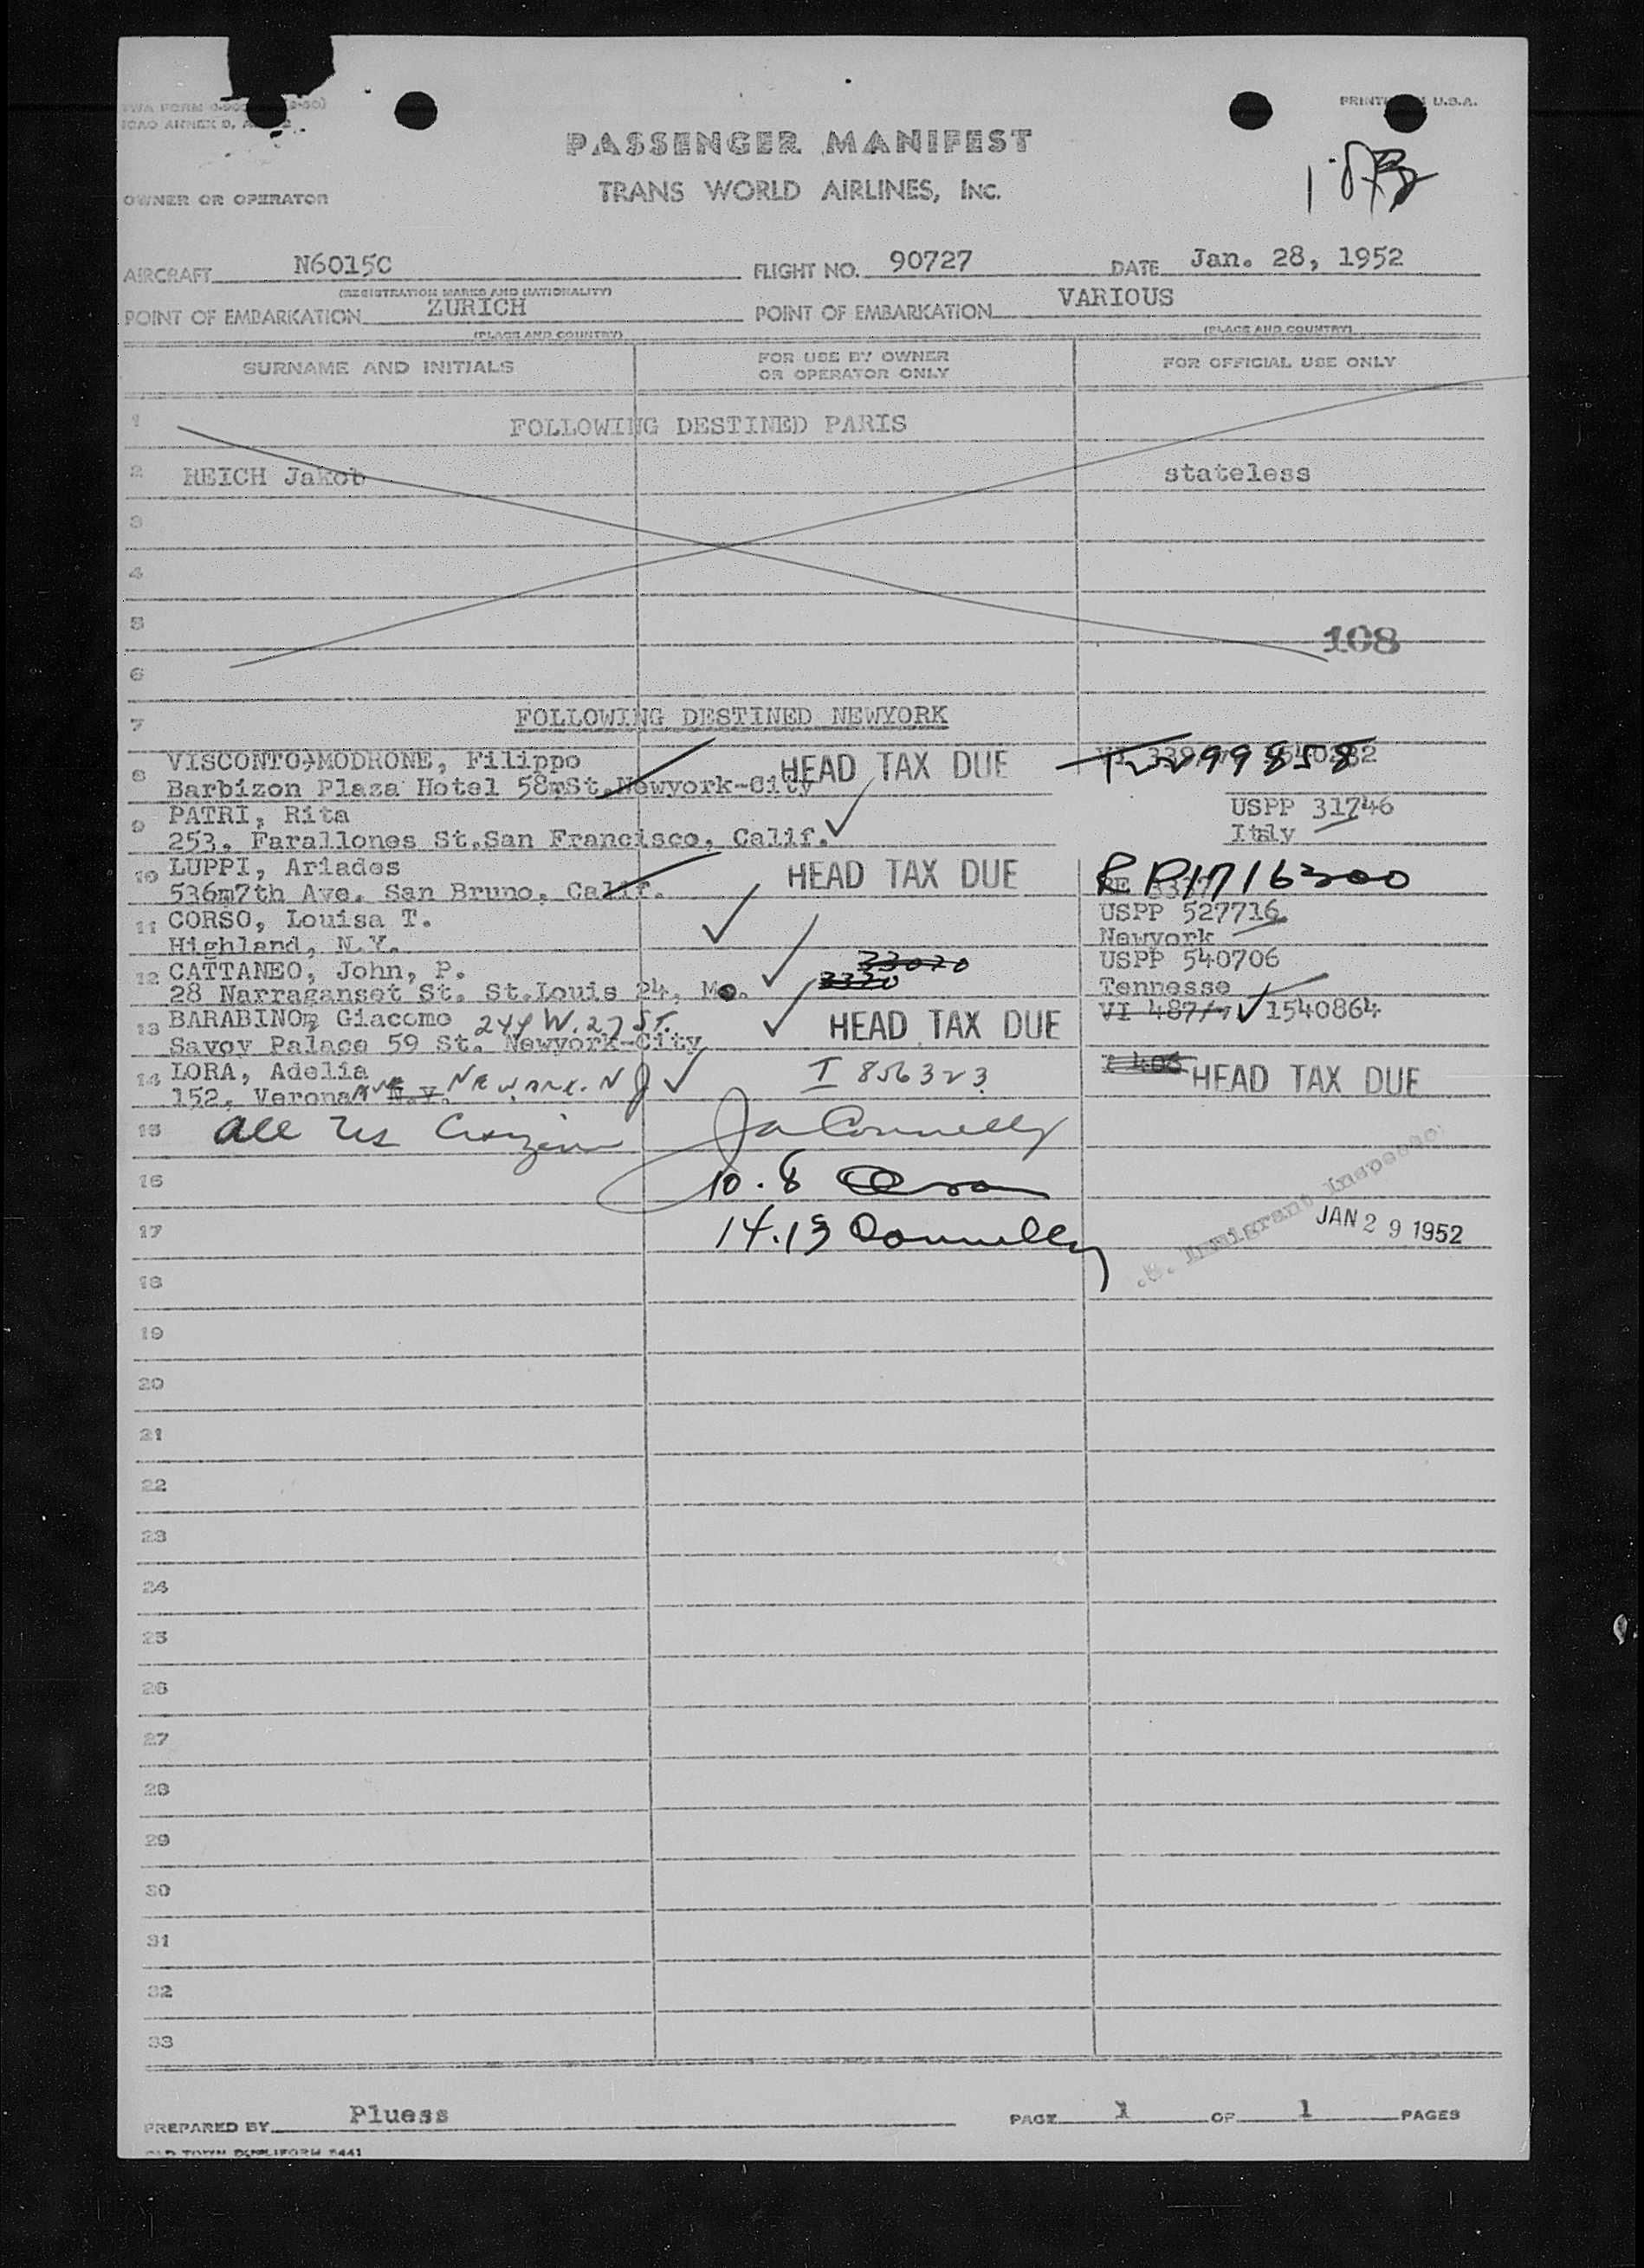 PRINTED IN U.S.A.
PASSENGER MANIFEST
OWNER OR OPERATOR
TRANS WORLD AIRLINES, INC.
AIRCRAFT N6015C FLIGHT NO. 90727 DATE Jan. 28, 1952
(REGISTRATION MARKS AND NATIONALITY)
POINT OF EMBARKATION ZURICH POINT OF EMBARKATION VARIOUS
(PLACE AND COUNTRY) (PLACE AND COUNTRY)
SURNAME AND INITIALS FOR USE BY OWNER OR OPERATOR ONLY FOR OFFICIAL USE ONLY
1 FOLLOWING DESTINED PARIS
2 REICH Jakob stateless
3
4
5
108
6
7 FOLLOWING DESTINED NEWYORK
8 VISCONTO-MODRONE, Filippo HEAD TAX DUE
Barbizon Plaza Hotel 58mSt.Newyork-City
9 PATRI, Rita USPP 31746
253, Farallones St.San Francisco, Calif. Italy
10 LUPPI, Ariades HEAD TAX DUE RP1716300
536m7th Ave. San Bruno, Calif.
11 CORSO, Louisa T. USPP 527716
Highland, N.Y. Newyork
12 CATTANEO, John, P. 33020 USPP 540706
28 Narraganset St. St.Louis 24, Mo. 3320 Tennesse
13 BARABINO, Giacomo 244 W. 27 ST. HEAD TAX DUE VI 487 1540864
Savoy Palace 59 St. Newyork-City
14 LORA, Adelia I 856323 HEAD TAX DUE
152, Verona Ave N.Y. NEWARK. N J
15 All US Citizens Ja Connelly
16 10.8
17 14.13 Connelly
Immigrant Inspector
JAN 29 1952
18
19
20
21
22
23
24
25
26
27
28
29
30
31
32
33
PREPARED BY Pluess PAGE 1 OF 1 PAGES
OLD TOWN DUPLIFORM 5441